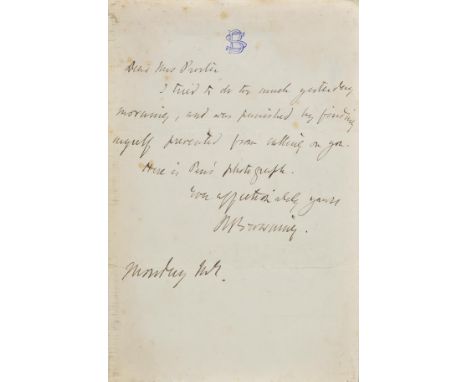 Dear Mrs Procter
I tried to do too much yesterday
morning, and was punished by finding
myself prevented from calling on you.
Here is Pen's photograph.
Ever affectionately yours
RBrowning.
Monday M.